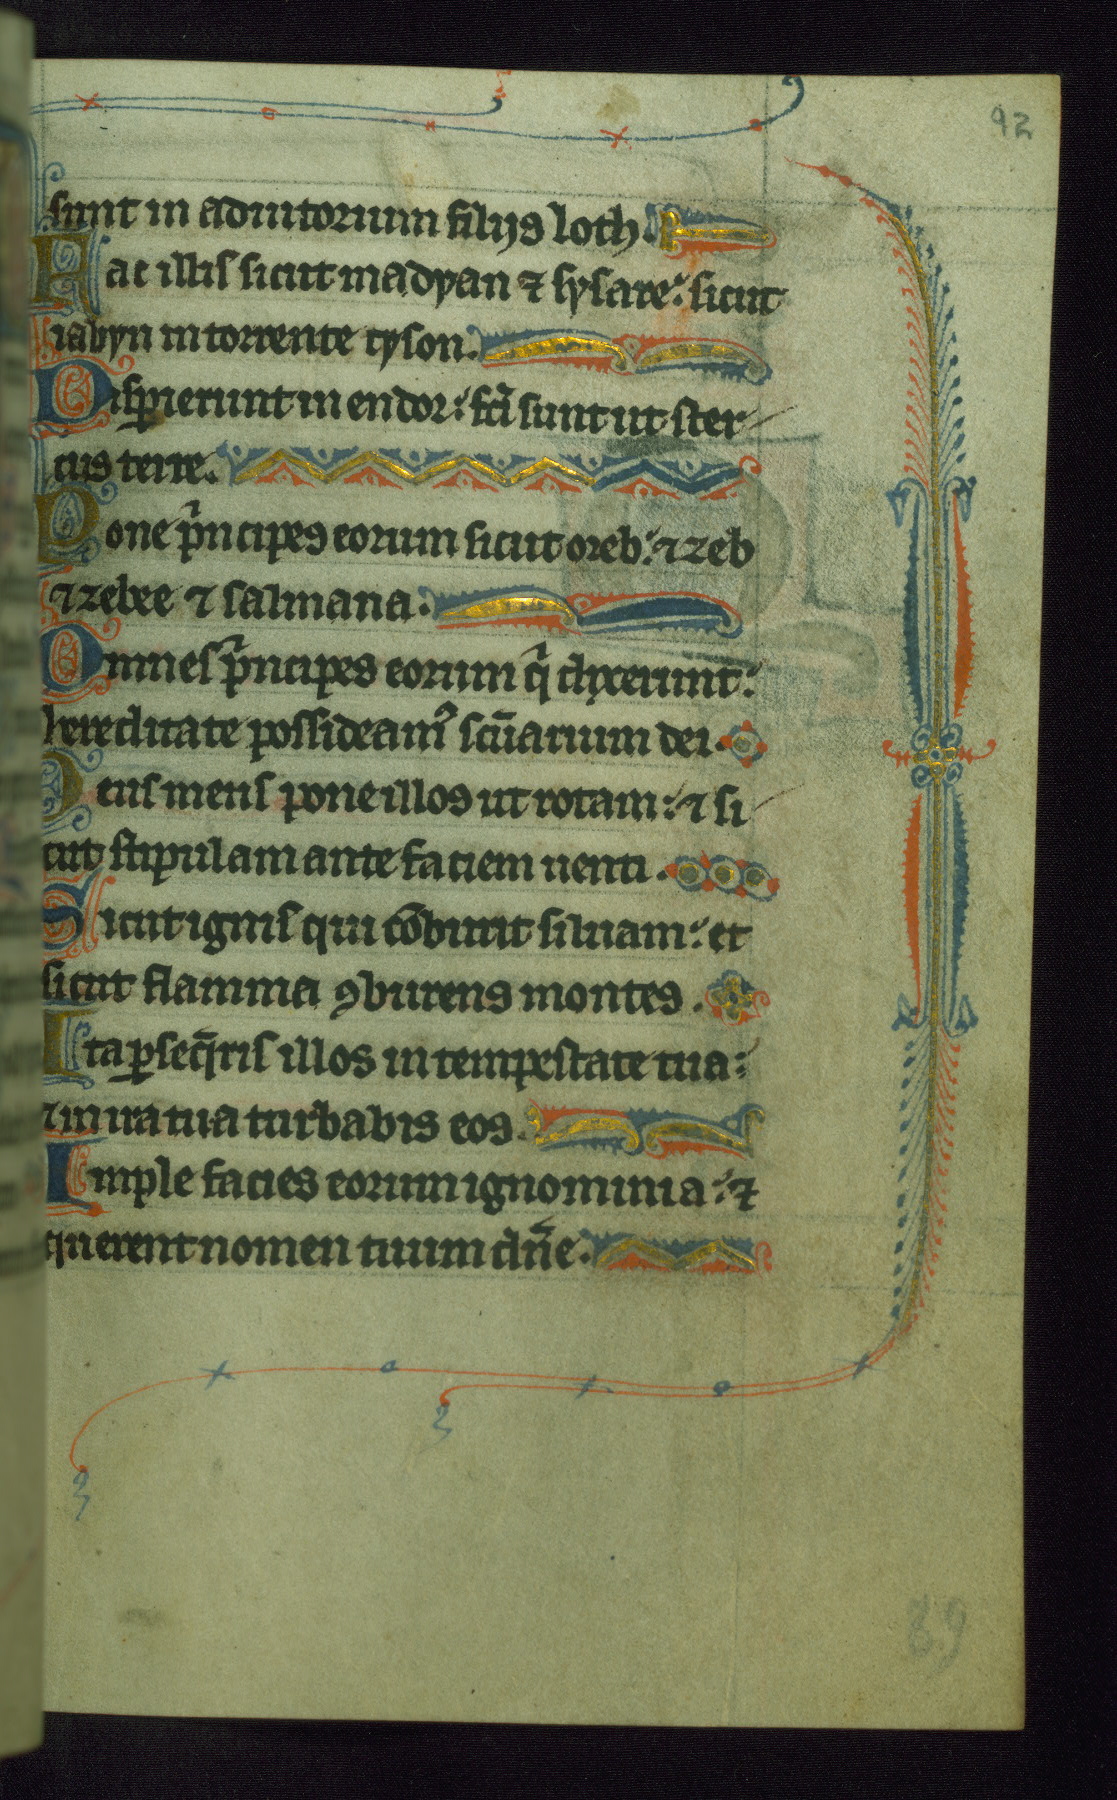 92
sunt in adiutorium filijs loth.
Fac illis sicut madyan ⁊ sysare: sicut
iabyn in torrente cyson.
Disp̱ierunt in endor: fc̄i sunt ut ster
cus terre.
Pone pͥncipes eorum sicut oreb: ⁊ zeb
⁊ zebee ⁊ salmana.
Omnes pͥncipes eorum qͥ dixerunt:
hereditate possideamꝰ scūarium dei.
Deus meus pone illos ut rotam: ⁊ si
cut stipulam ante faciem uenti.
Sicut ignis qui cōburit siluam: et
sicut flamma ꝯburens montes.
Ita ꝑseq̄ris illos in tempestate tua:
⁊ in ira tua turbabis eos.
Imple facies eorum ignominia: ⁊
querent nomen tuum dn̄e.
89